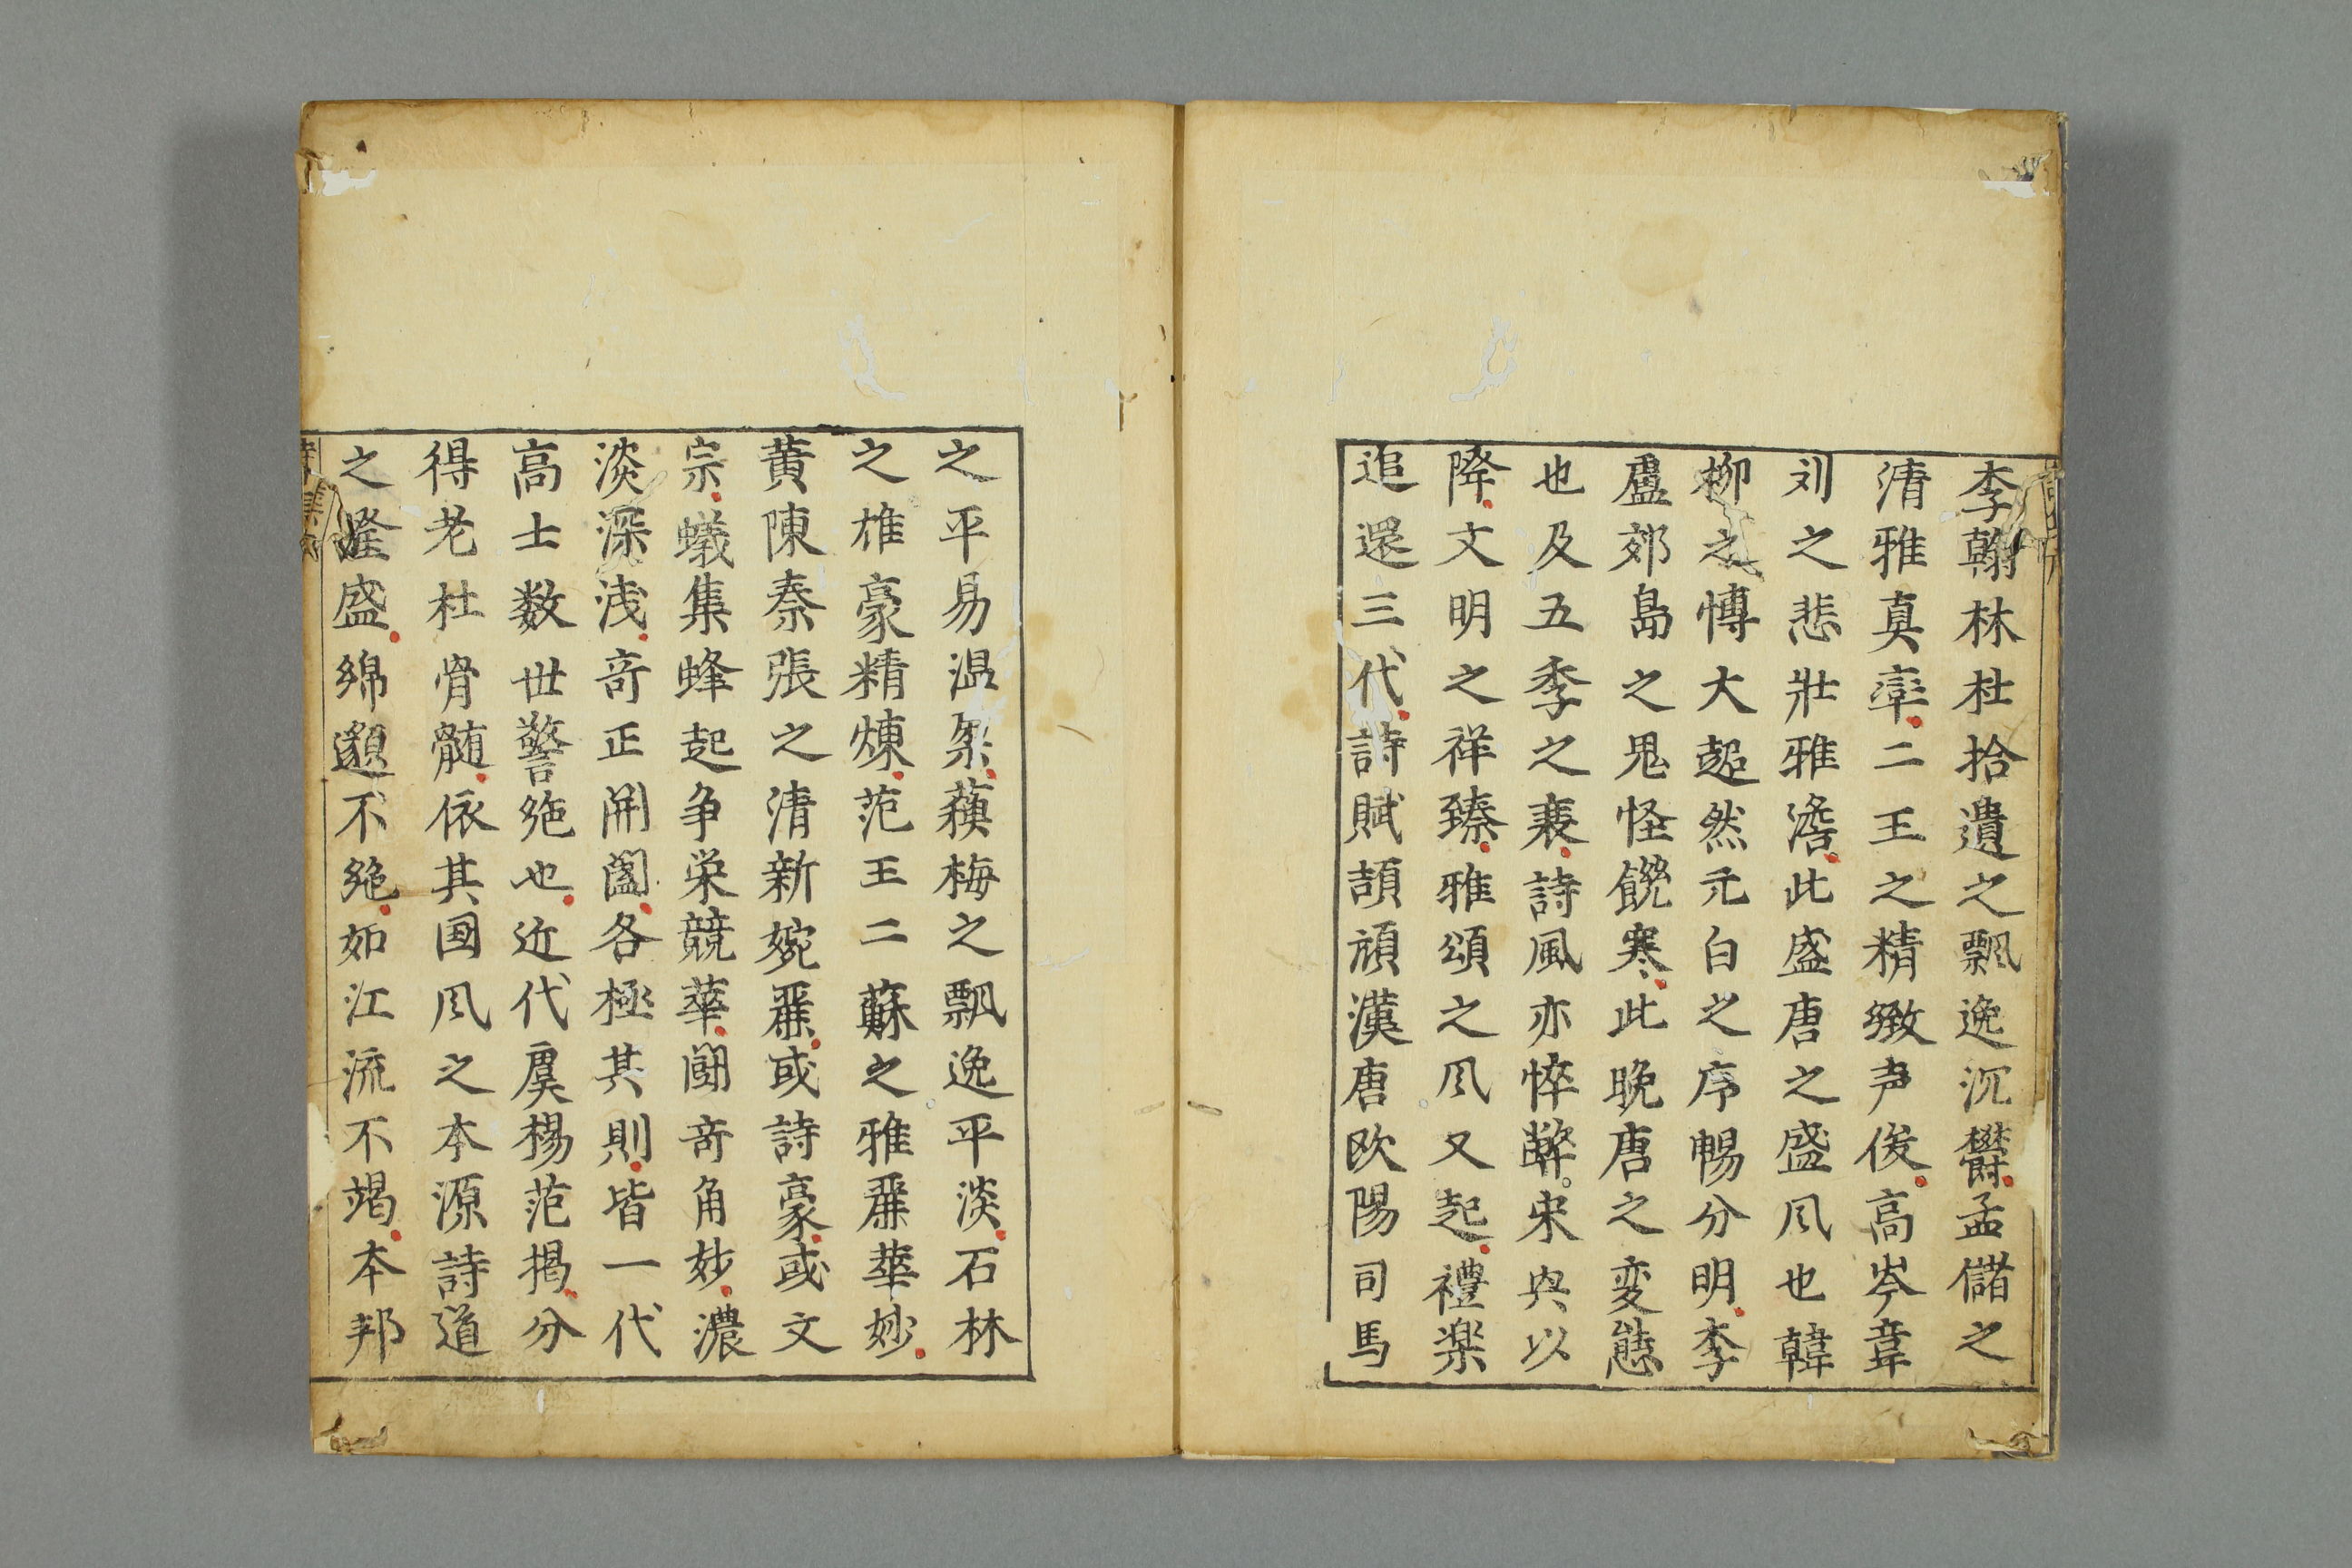 李翰林杜拾遺之飄逸沉欎孟儲之
清雅真率二王之精緻声俊高岑韋
刘之悲壯雅澹此盛唐之盛风也韓
柳之愽大超然元白之序暢分明李
盧郊島之鬼怪饑寒此晚唐之变態
也及五季之衰詩風亦悴弊宋興以
降文明之祥臻雅頌之风又起禮楽
追還三代詩賦頡頏漢唐欧陽司馬
之平易温柔蘓梅之飄逸平淡石林
之雄豪精煉范王二蘇之雅麗華妙
黄陳秦張之清新婉麗或詩豪或文
宗蟻集蜂起争栄競華闘竒角妙濃
淡深浅竒正開闔各極其則皆一代
高士数世警絶也近代虞楊范揭分
得老杜骨髄依其国风之本源詩道
之隆盛綿邈不絶如江流不竭本邦